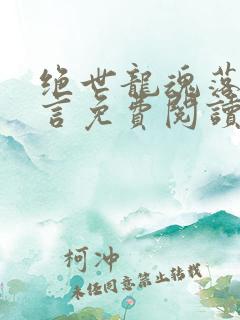 绝世龍魂落
言免費閱讀
柯冲
未经同意禁止转载